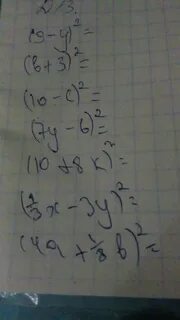 Д/З.
(9-y)²=
(b+3)²=
(10-c)²=
(7y-6)²=
(10+8k)²=
(2/3x-3y)²=
(4a+1/8b)²=